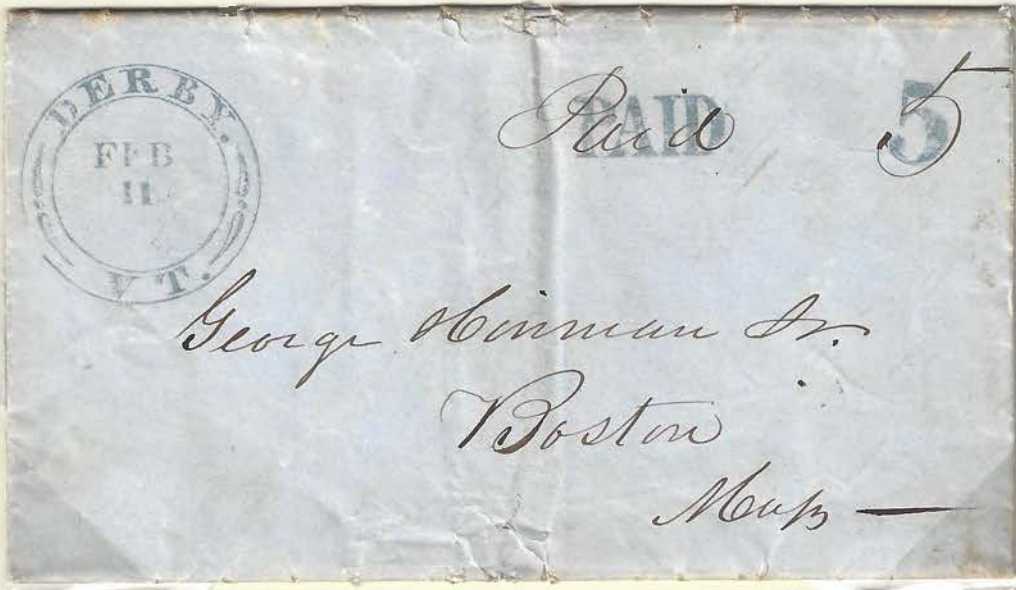 DERBY.
FEB
11
VT.
Paid
PAID
5
5
George Hinman Jr.
Boston
Mass —